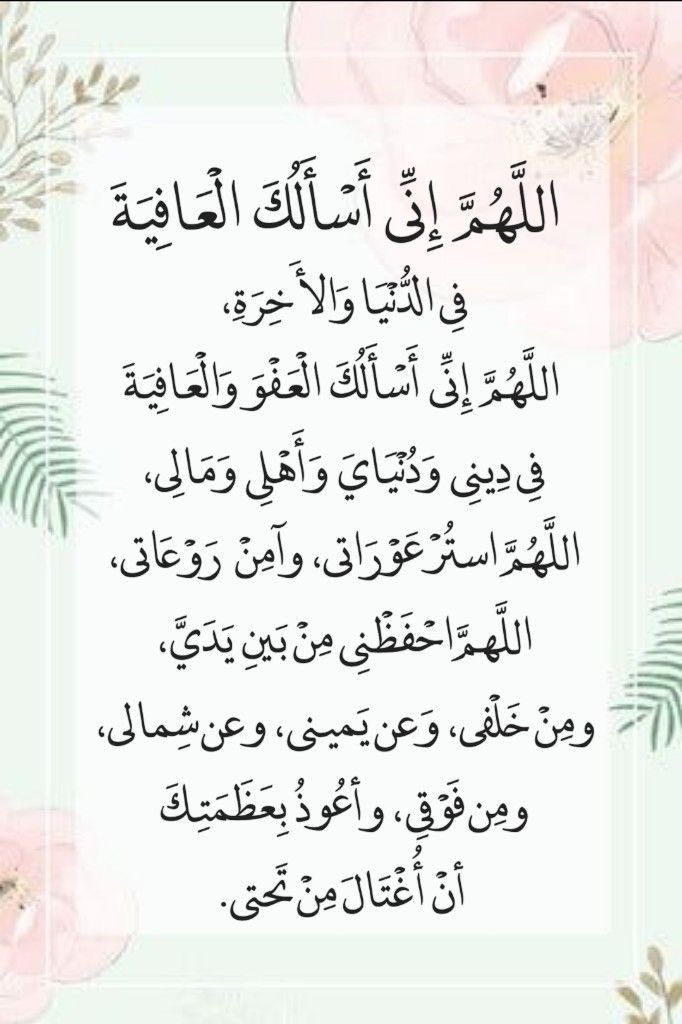 اللَّهُمَّ إِنِّى أَسْأَلُكَ الْعَافِيَةَ
فِى الدُّنْيَا وَالأَخِرَةِ،
اللَّهُمَّ إِنِّى أَسْأَلُكَ الْعَفْوَ وَالْعَافِيَةَ
فِى دِينِى وَدُنْيَايَ وَأَهْلِى وَمَالِى،
اللَّهُمَّ استُرْ عَوْرَاتى، وآمِنْ رَوْعَاتى،
اللَّهمَّ احْفَظْنِى مِنْ بَينِ يَدَيَّ،
ومِنْ خَلْفى، وَعن يَمينى، وعن شِمالى،
ومِن فَوْقِي، وأعُوذُ بِعَظَمَتِكَ
أنْ أُغْتَالَ مِنْ تَحتى.